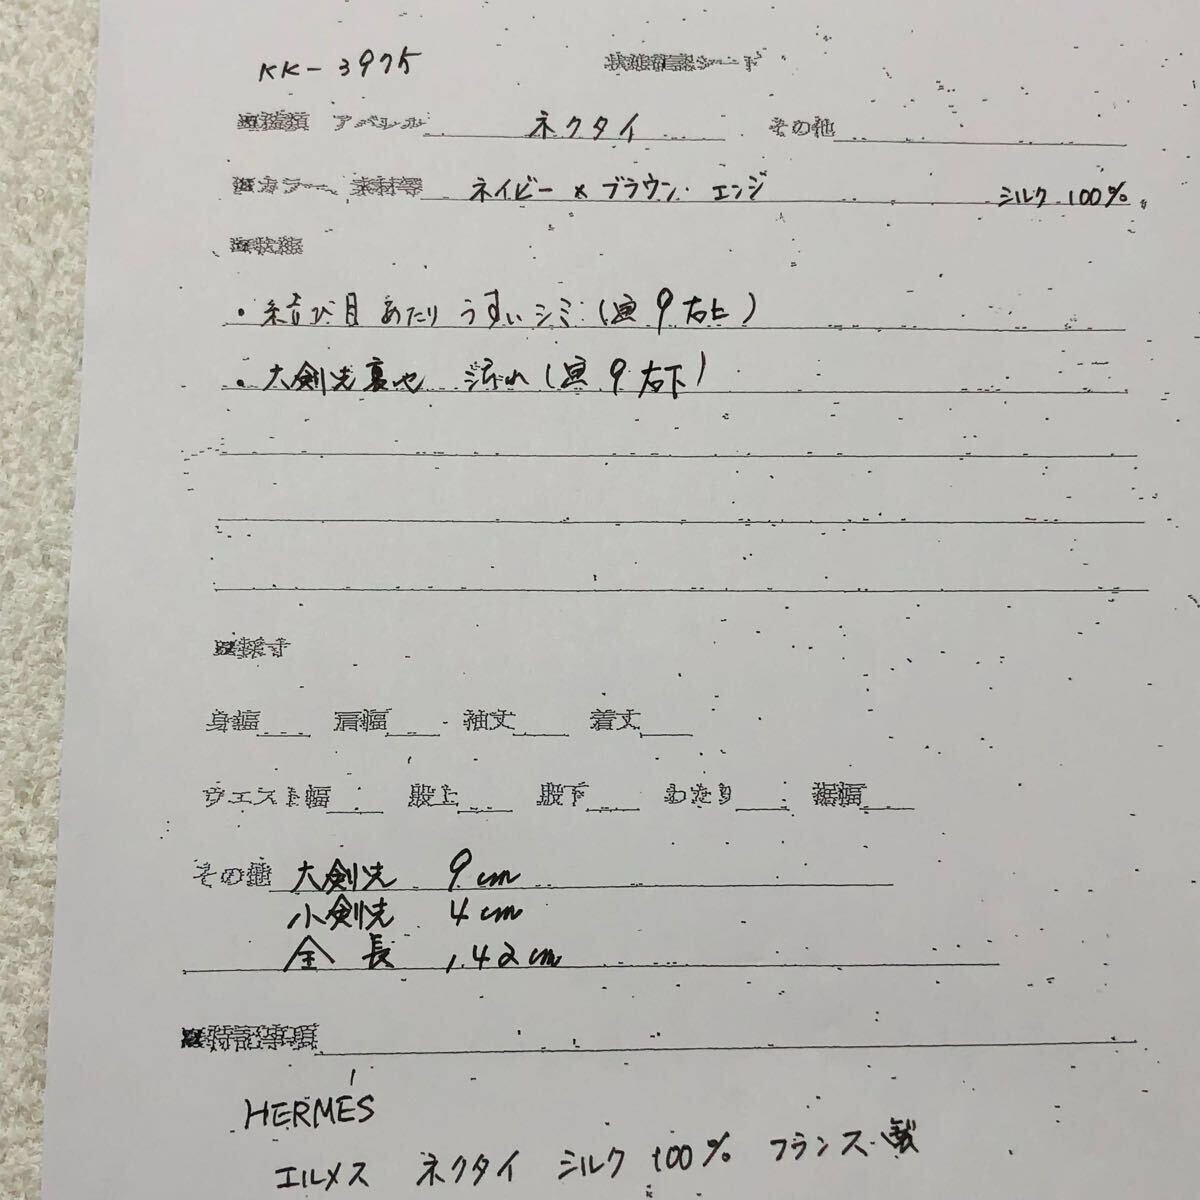 KK-3975
状態確認シート
■種類 アパレル ネクタイ その他
■カラー、素材等 ネイビー×ブラウン・エンジ シルク 100%
■状態
・結び目あたり うすいシミ(画9右上)
・大剣先裏地 汚れ(画9右下)
■採寸
身幅 肩幅 袖丈 着丈
ウエスト幅 股上 股下 わたり 裾幅
その他 大剣先 9cm
小剣先 4cm
全長 142cm
■特記事項
HERMÈS
エルメス ネクタイ シルク 100% フランス製